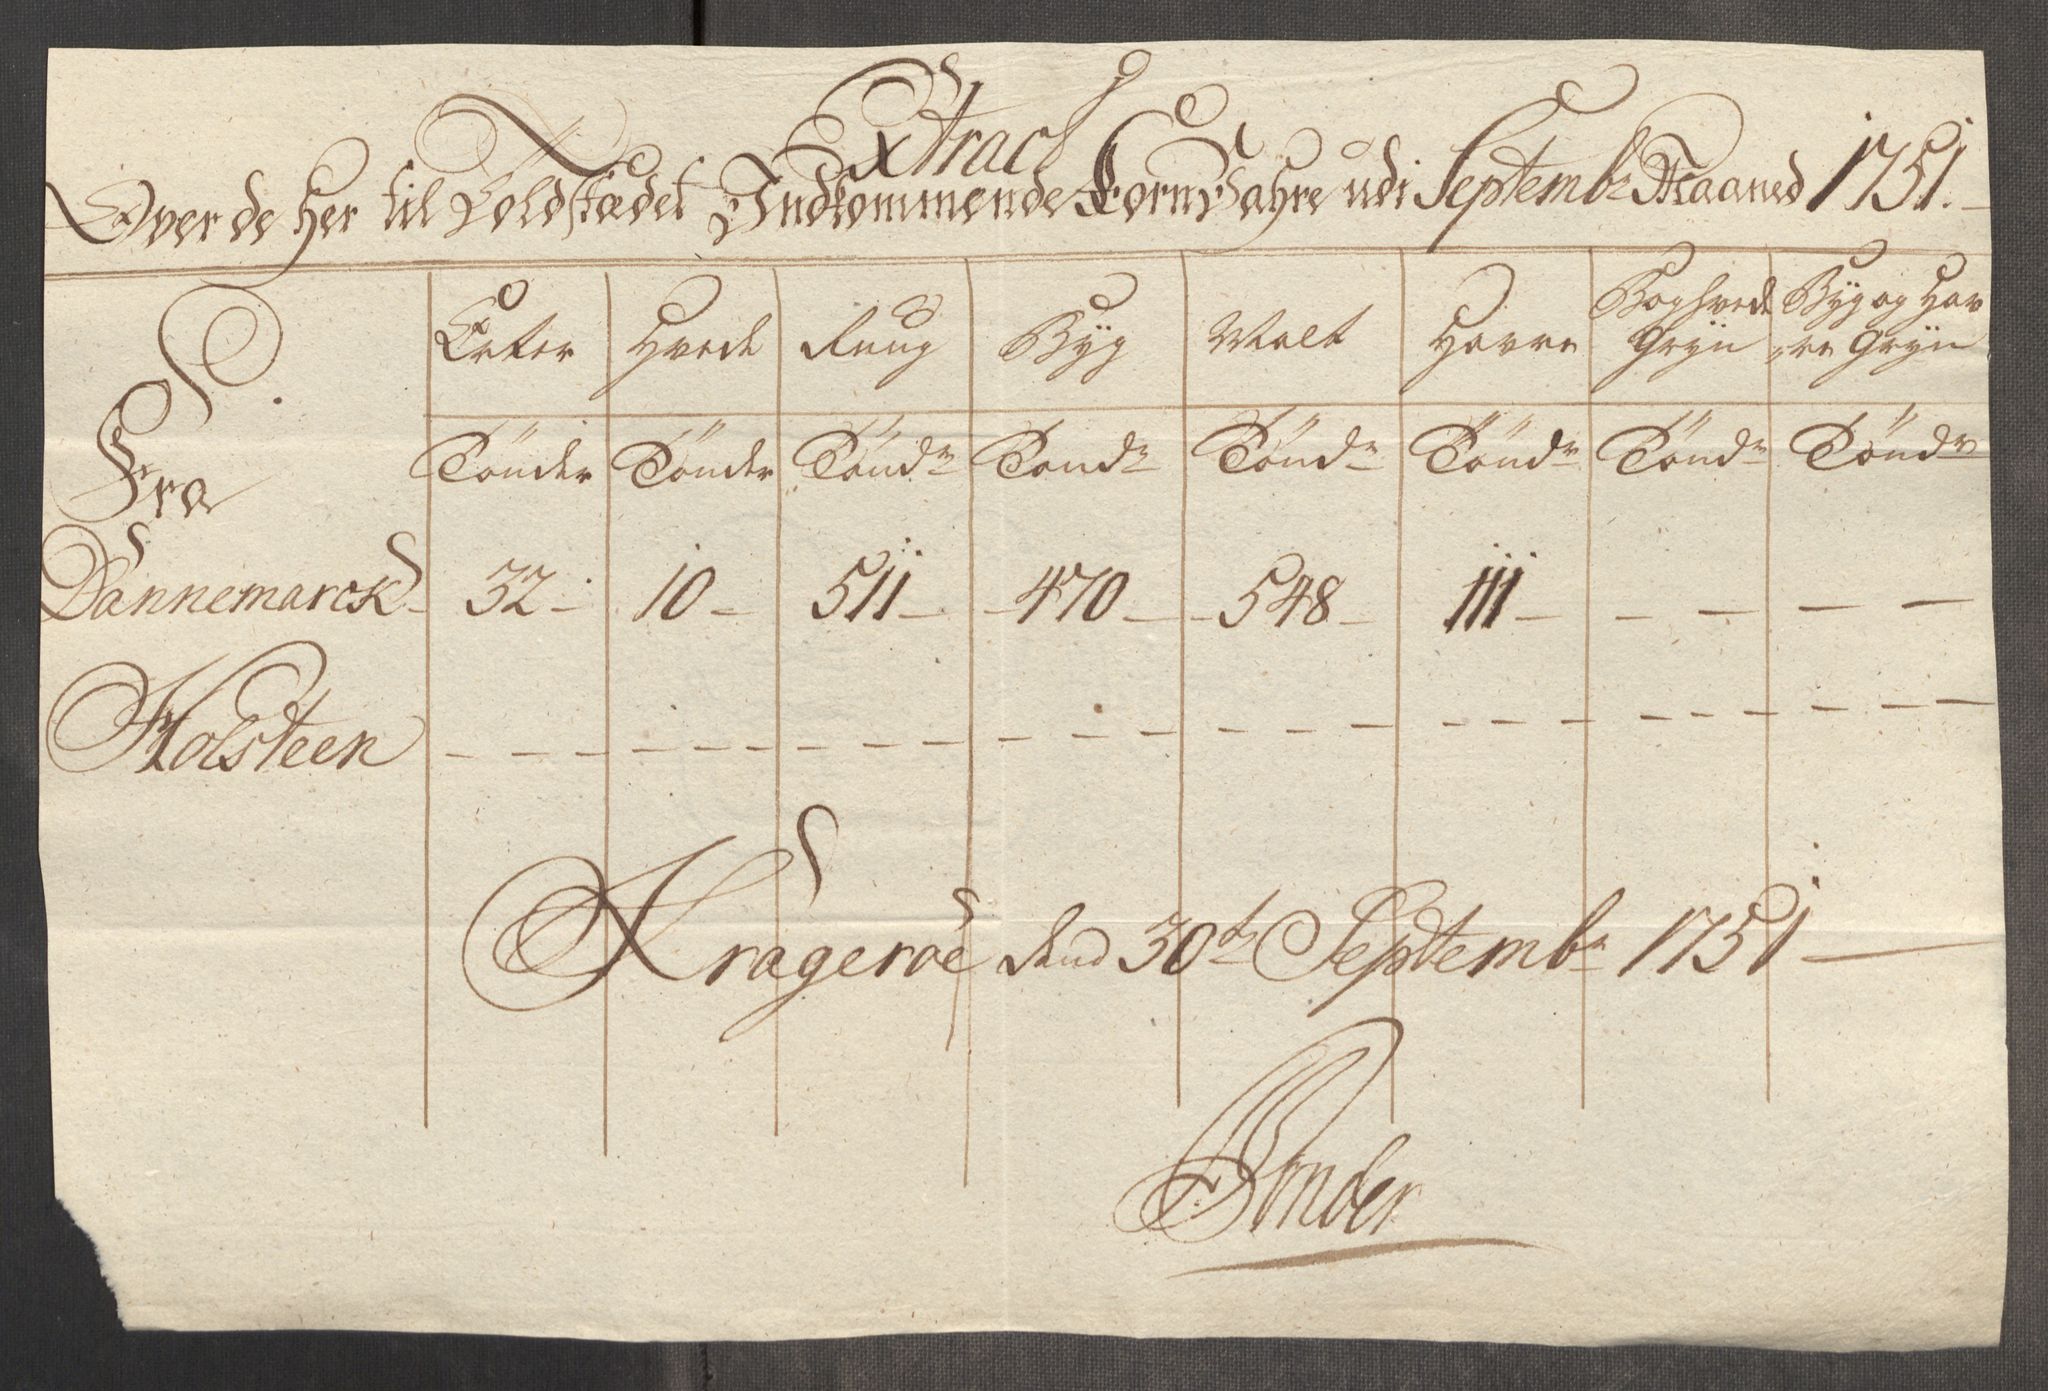 Extract
Over de her til Toldstædet Indkommende Kornvahre udi Septembr Maaned 1751.
Fra
Erter Hvede Rug Byg Malt Havre Boghvede Gryn Byg og Havre Gryn
Tönder Tönder Töndr Töndr Töndr Töndr Töndr Töndr
Dannemarck 32 - 10 - 511 - 470 - 548 - 111 - - - - -
Holsteen - - - - - - - - - - - - - - - -
Krageröe den 30te Septembr 1751